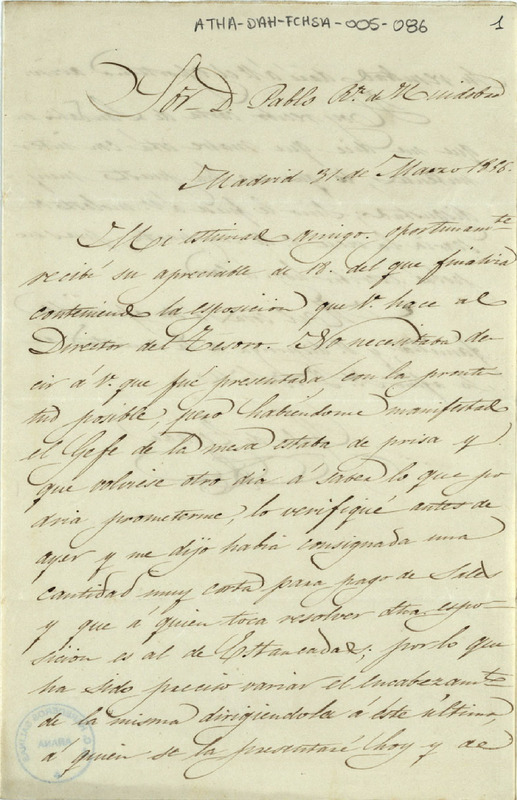 ATHA-DAH-FCHSA-005-086
1
Sor. D. Pablo Rz. de Huidobro
Madrid 31 de Marzo 1838.
Mi estimad amigo. oportunamte
recibí su apreciable de 18. del que finaliza
conteniend la esposicion que V. hace al
Director del Tesoro. No necesitaba de-
cir á V. que fué presentada con la pronti
tud posible, pero habiéndome manifestad
el Gefe de la mesa estaba de prisa y
que volviese otro dia á saber lo que po
dria prometerme, lo verifiqué antes de
ayer y me dijo habia consignada una
cantidad muy corta para pago de Sales
y que á quien toca resolver dha espo-
sicion es al de Estancadas; por lo que
ha sido preciso variar el encabezamto
de la misma dirigiendola á este último
á quien se la presentaré hoy y de